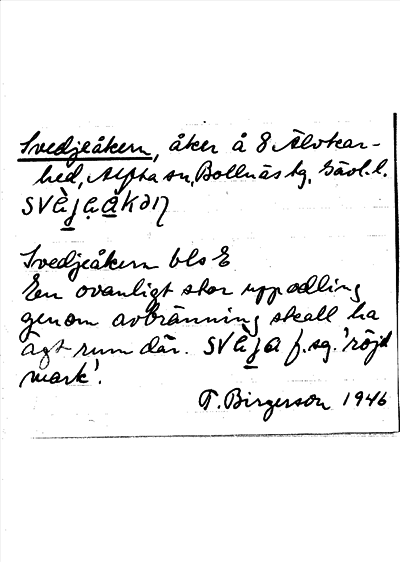 Svedjeåkern, åker å 8 Älvkar-
hed, Alfta sn, Bollnäs tg, Gävl.l.
Svedjeåkern bls E
En ovanligt stor uppodling
genom avbränning skall ha
ägt rum där. f.sg. 'röjd
mark'.
T. Birgerson 1946